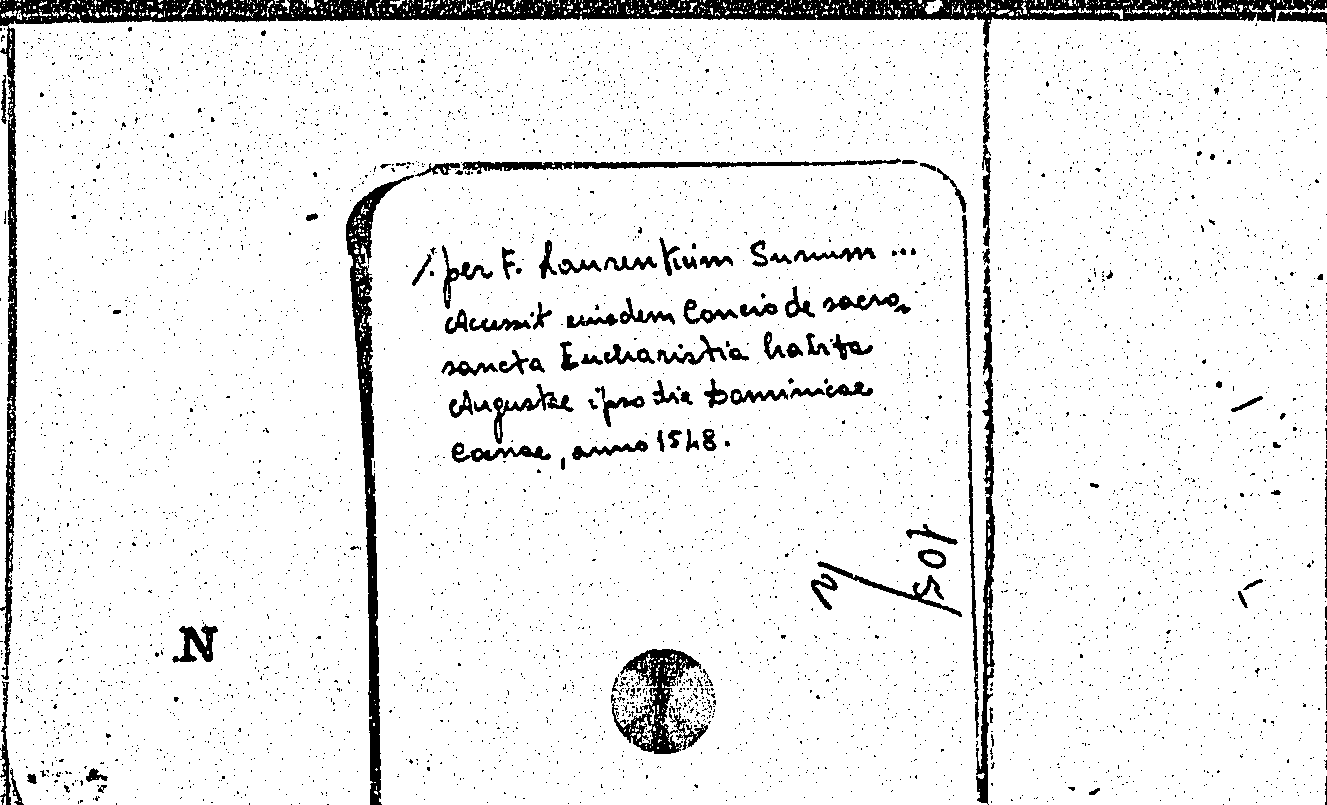 /. per F. Laurentium Surium ...
Accessit eiusdem Concio de sacro,
sancta Eucharistia habita
Augustae ipso die Dominicae
Coenae, anno 1548.
105/2
N